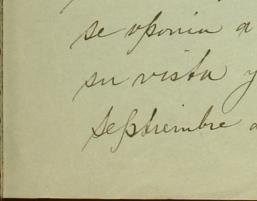 se oponia a
su vista y
Septiembre